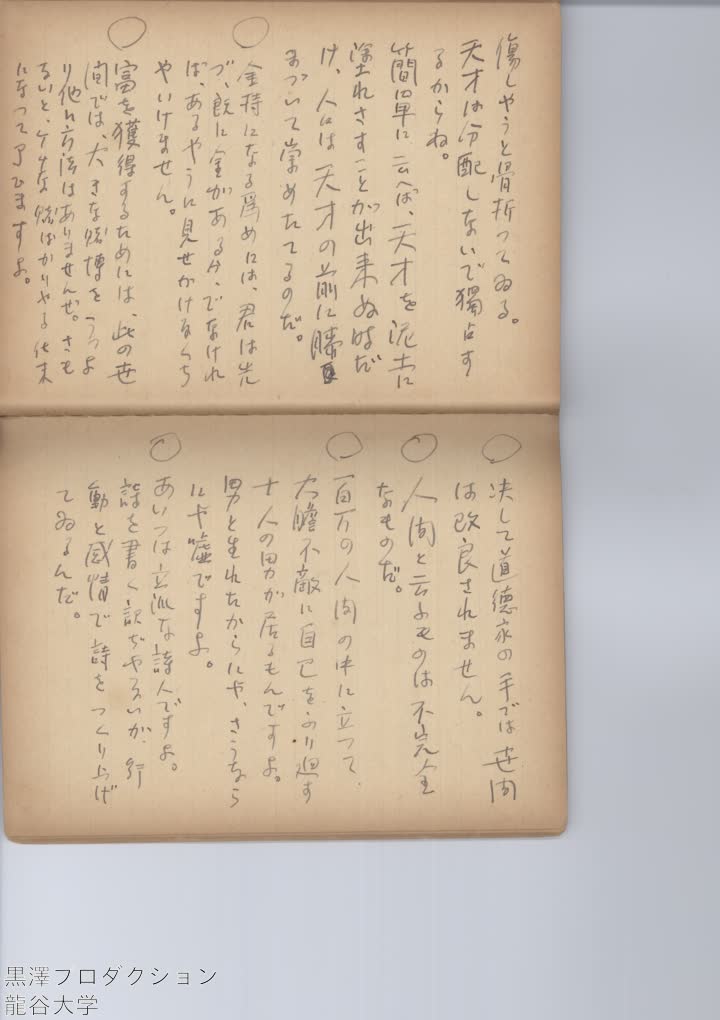 傷しやうと骨折つてゐる。
天才は分配しないで獨占す
るからね。
簡単に云へば、天才を泥土に
塗れさすことが出来ぬ時だ
け、人は天才の前に膝
まづいて崇めたてるのだ。
○
金持になる爲めには、君は先
づ、既に金があるか、でなけれ
ば、あるやうに見せかけなくち
やいけません。
○
富を獲得するためには、此の世
間では、大きな賭博をうつよ
り他に方法はありませんぜ。さも
ないと、ケチな賭ばかりやる仕末
になつて了ひますよ。
○
決して道徳家の手では世間
は改良されません。
○
人間と云ふものは不完全
なものだ。
○
一百万の人間の中に立つて
大膽不敵に自己をふり廻す
十人の男が居るもんですよ。
男と生れたからにや、さうなら
にや嘘ですよ。
○
あいつは立派な詩人ですよ。
詩を書く訳ぢやないが、行
動と感情で詩をつくり上げ
てゐるんだ。
黒澤フロダクション
龍谷大学